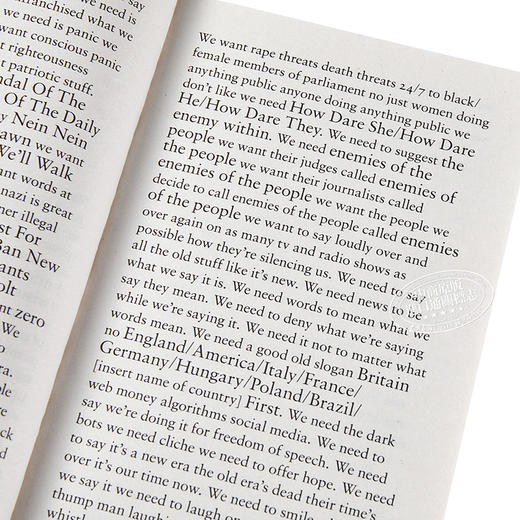 we need is
franchised what we
need is panic we
want conscious panic
righteousness
patriotic stuff.
Of The
Of The Daily
Nein Nein
we want
We'll Walk
want words at
nazi is great
illegal
For
Ban New
zero
We
We want rape threats death threats 24/7 to black/
female members of parliament no just women doing
anything public anyone doing anything public we
don't like we need How Dare She/How Dare
He/How Dare They. We need to suggest the
enemy within. We need enemies of the
people we want their judges called enemies of
the people we want their journalists called
enemies of the people we want the people we
decide to call enemies of the people called enemies
of the people we want to say loudly over and
over again on as many tv and radio shows as
possible how they're silencing us. We need to say
all the old stuff like it's new. We need news to be
what we say it is. We need words to mean what we
say they mean. We need to deny what we're saying
while we're saying it. We need it not to matter what
words mean. We need a good old slogan Britain
no England/America/Italy/France/
Germany/Hungary/Poland/Brazil/
[insert name of country] First. We need the dark
web money algorithms social media. We need to
say we're doing it for freedom of speech. We need
bots we need cliche we need to offer hope. We need
to say it's a new era the old era's dead their time's
over it's our time now. We need to smile
say it we need to laugh on
thump man laugh